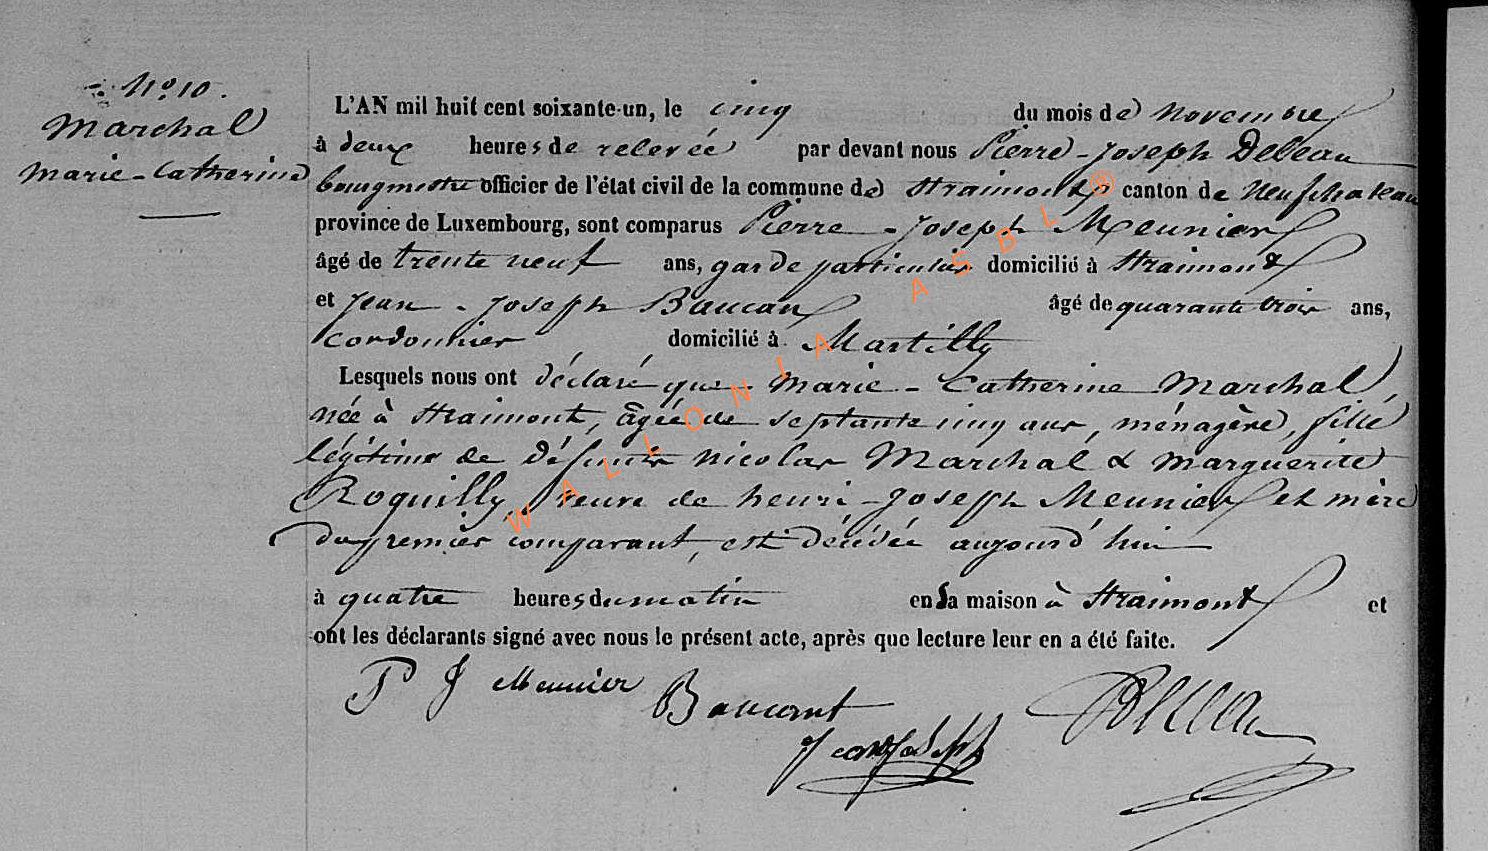 N° 10.
Marchal
Marie-Catherine
L'AN mil huit cent soixante-un, le cinq du mois de novembre
à deux heures de relevée par devant nous Pierre-Joseph Deleau
bourgmestre officier de l'état civil de la commune de Straimont canton de Neufchateau
province de Luxembourg, sont comparus Pierre-Joseph Meunier
âgé de trente neuf ans, garde particulier domicilié à Straimont
et Jean-Joseph Baucan âgé de quarante trois ans,
cordonnier domicilié à Martilly
Lesquels nous ont déclaré que Marie-Catherine Marchal,
née à Straimont, âgée de septante cinq ans, ménagère, fille
légitime de défunts Nicolas Marchal & Marguerite
Roquilly, veuve de henri-Joseph Meunier et mère
du premier comparant, est décédée aujourd'hui
à quatre heures du matin en sa maison à Straimont et
ont les déclarants signé avec nous le présent acte, après que lecture leur en a été faite.
P J Meunier Baucant
Jean Joseph
Deleau
WALLONIA ASBL ®